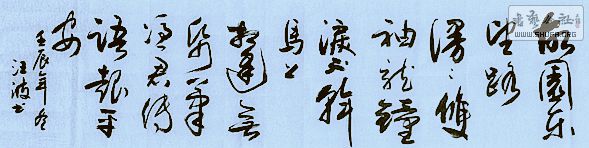 故園东
望路
漫々雙
袖龍鐘
淚不乾
馬上
相逢無
紙筆
憑君傳
語報平
安
壬辰年冬
汪波书
书艺公社
WWW.SHUFA.ORG